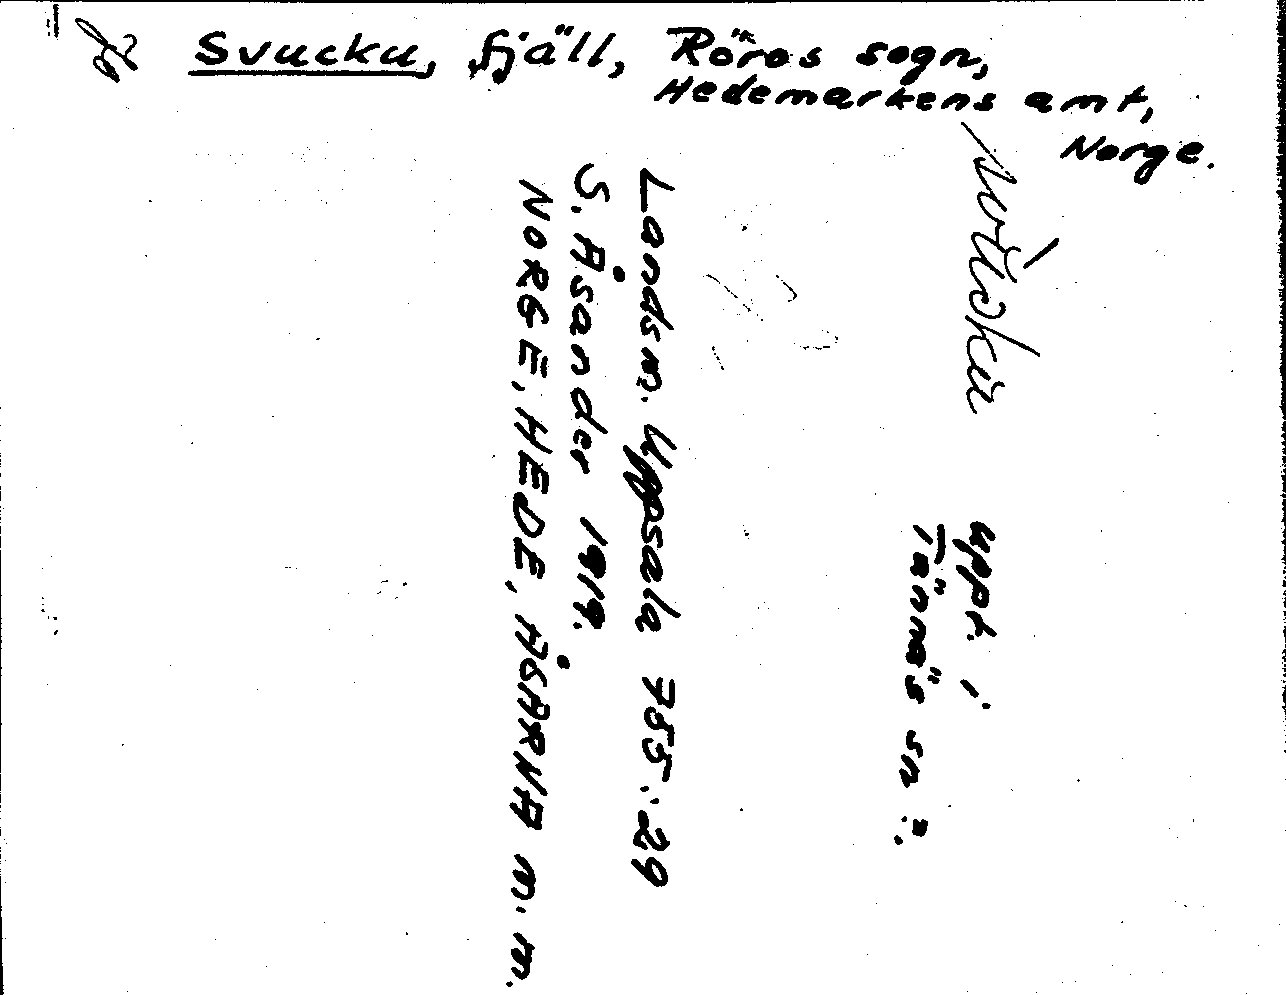 Svucku, fjäll, Röros sogn,
Hedemarkens amt,
Norge.
uppt. i
Tännäs sn?
Landsm. Uppsala 755:29
S. Åsander 1919.
NORGE, HEDE, ÅSARNA m.m.